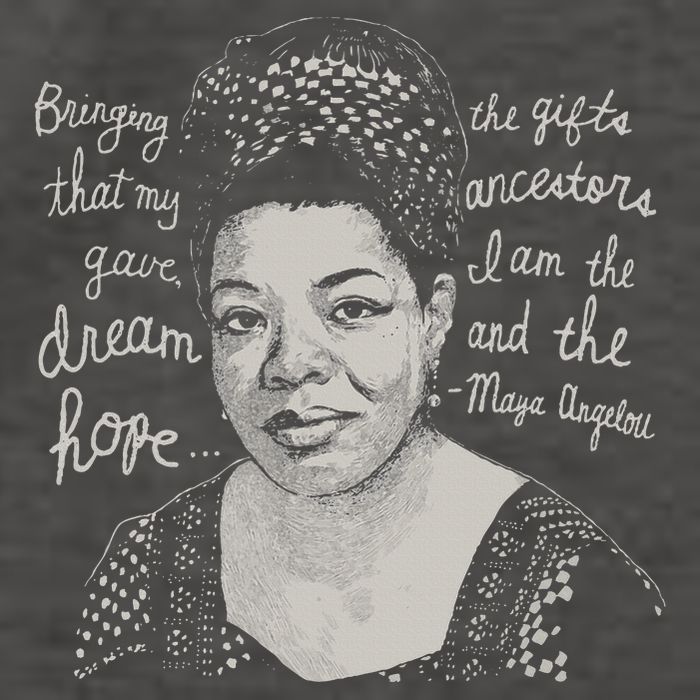 Bringing the gifts
that my ancestors
gave, I am the
dream and the
hope...
-Maya Angelou